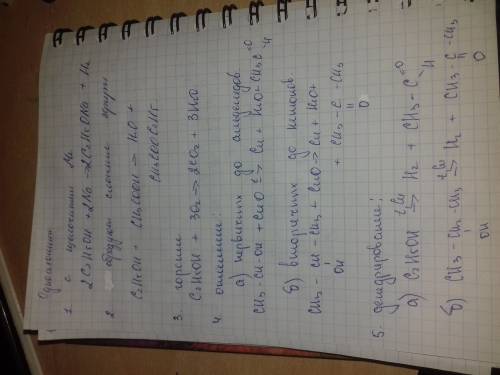 1 Одноатомные
1. с щелочными Me
2C2H5OH + 2Na → 2C2H5ONa + H2
2. образуют сложные эфиры
C2H5OH + CH3COOH → H2O +
CH3COOC2H5
3. горение
C2H5OH + 3O2 → 2CO2 + 3H2O
4. окисление:
а) первичных до альдегидов
CH3-CH-OH + CuO t°→ Cu + H2O + CH3C=O
-H
б) вторичных до кетонов
CH3 - CH - CH3 + CuO → Cu + H2O +
OH
+ CH3 - C - CH3
=
O
5. дегидрирование:
а) C2H5OH t°Cu→ H2 + CH3 - C =O
- H
б) CH3 - CH - CH3 t°Cu→ H2 + CH3 - C - CH3
OH
O